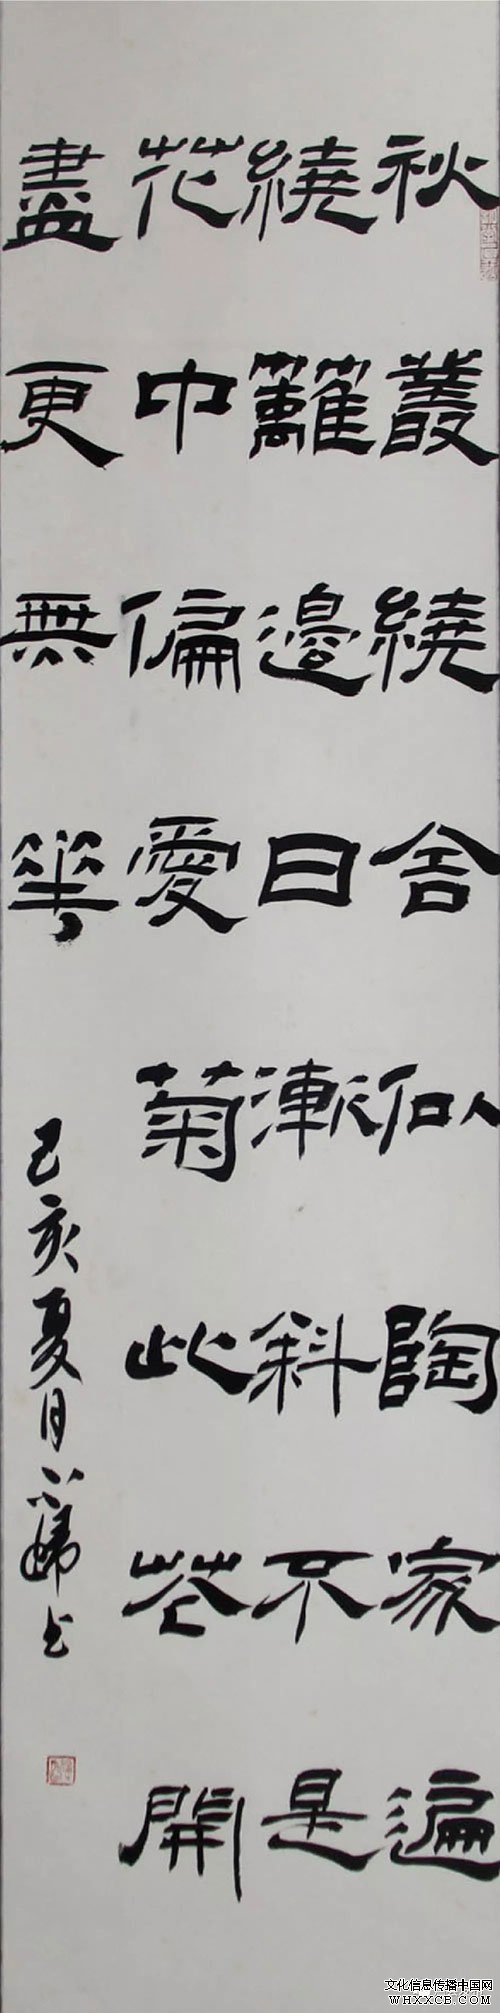 秋叢繞舍似陶家遍
繞籬邊日漸斜不是
花中偏愛菊此花開
盡更無華
己亥夏月
文化信息传播中国网
WHXXCB.COM